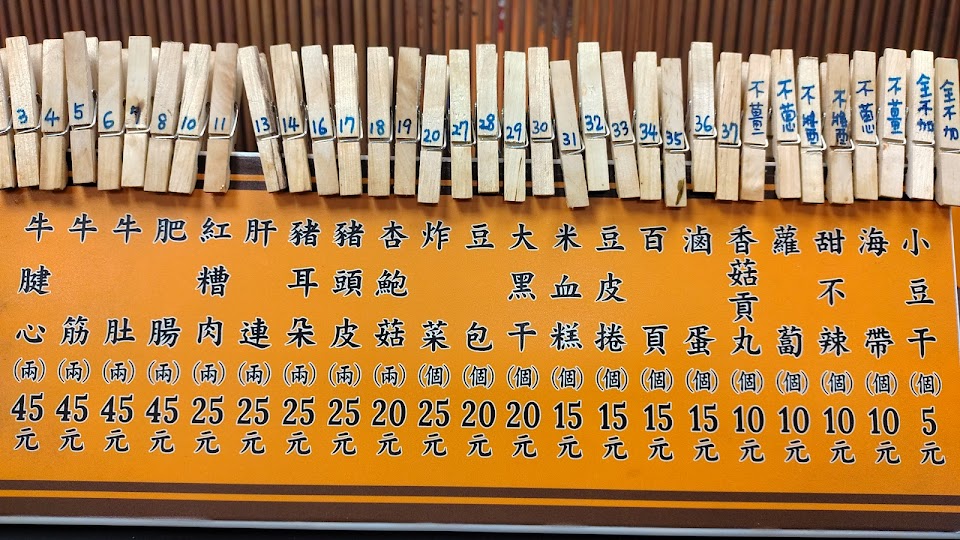 3
4
5
6
7
8
10
11
13
14
16
17
18
19
20
27
28
29
30
31
32
33
34
35
36
37
不薑
不蔥
不
不
不蔥
不薑
全不加
全不加
牛腱心(兩)45元
牛筋(兩)45元
牛肚(兩)45元
肥腸(兩)45元
紅糟肉(兩)25元
肝連(兩)25元
豬耳朵(兩)25元
豬頭皮(兩)25元
杏鮑菇(兩)20元
炸菜(個)25元
豆包(個)20元
大黑干(個)20元
米血糕(個)15元
豆皮捲(個)15元
百頁(個)15元
滷蛋(個)15元
香菇貢丸(個)10元
蘿蔔(個)10元
甜不辣(個)10元
海帶(個)10元
小豆干(個)5元